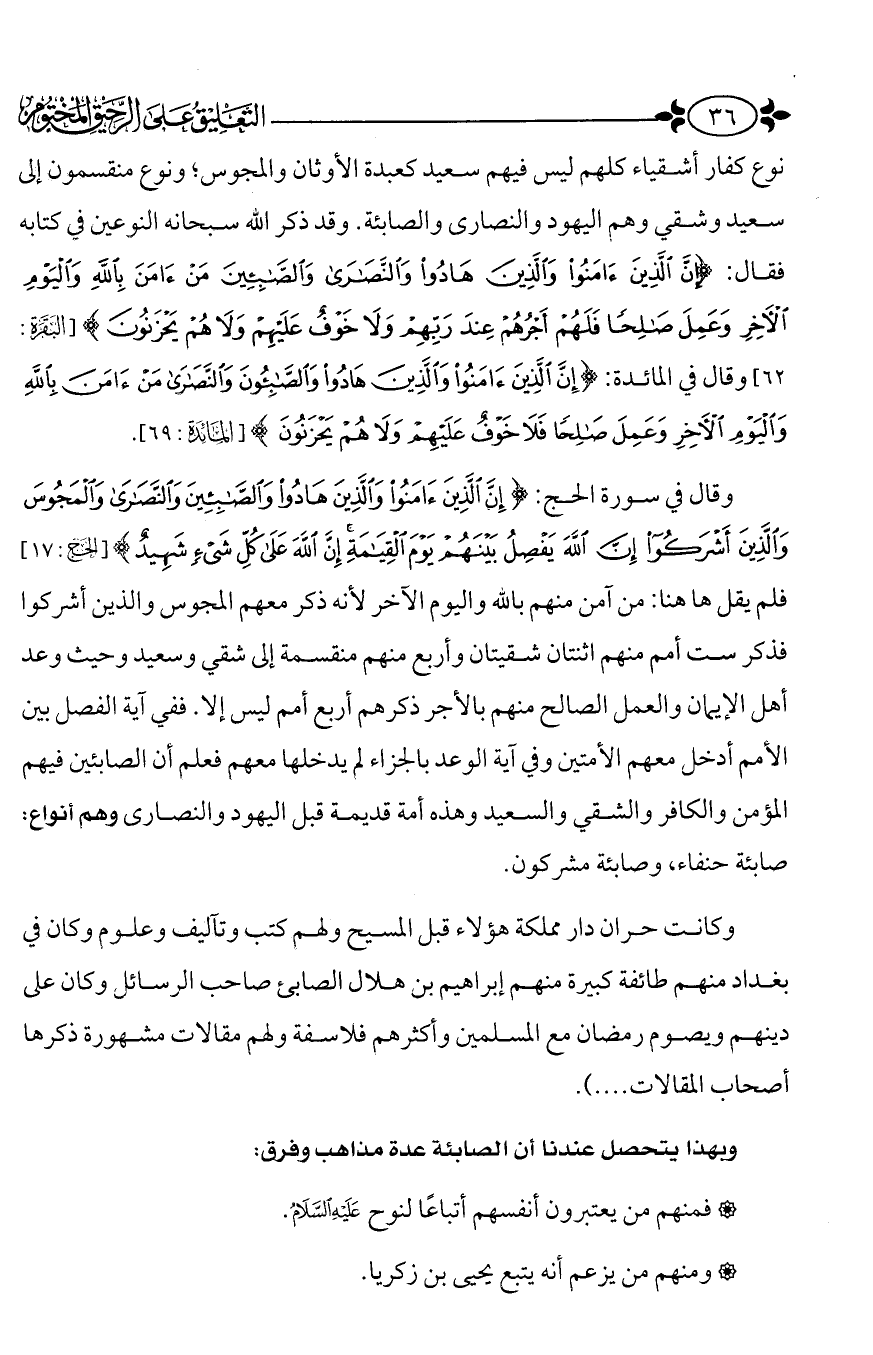 ٣٦ التعليق على الرحيق المختوم
نوع كفار أشقياء كلهم ليس فيهم سعيد كعبدة الأوثان والمجوس؛ ونوع منقسمون إلى
سعيد وشقي وهم اليهود والنصارى والصابئة. وقد ذكر الله سبحانه النوعين في كتابه
فقال: ﴿إِنَّ ٱلَّذِينَ ءَامَنُوا۟ وَٱلَّذِينَ هَادُوا۟ وَٱلنَّصَـٰرَىٰ وَٱلصَّـٰبِـِٔينَ مَنْ ءَامَنَ بِٱللَّهِ وَٱلْيَوْمِ
ٱلْـَٔاخِرِ وَعَمِلَ صَـٰلِحًا فَلَهُمْ أَجْرُهُمْ عِندَ رَبِّهِمْ وَلَا خَوْفٌ عَلَيْهِمْ وَلَا هُمْ يَحْزَنُونَ﴾ [البَقَرَة:
٦٢] وقال في المائدة: ﴿إِنَّ ٱلَّذِينَ ءَامَنُوا۟ وَٱلَّذِينَ هَادُوا۟ وَٱلصَّـٰبِـُٔونَ وَٱلنَّصَـٰرَىٰ مَنْ ءَامَنَ بِٱللَّهِ
وَٱلْيَوْمِ ٱلْـَٔاخِرِ وَعَمِلَ صَـٰلِحًا فَلَا خَوْفٌ عَلَيْهِمْ وَلَا هُمْ يَحْزَنُونَ﴾ [المَائدة: ٦٩].
وقال في سورة الحج: ﴿إِنَّ ٱلَّذِينَ ءَامَنُوا۟ وَٱلَّذِينَ هَادُوا۟ وَٱلصَّـٰبِـِٔينَ وَٱلنَّصَـٰرَىٰ وَٱلْمَجُوسَ
وَٱلَّذِينَ أَشْرَكُوٓا۟ إِنَّ ٱللَّهَ يَفْصِلُ بَيْنَهُمْ يَوْمَ ٱلْقِيَـٰمَةِ ۚ إِنَّ ٱللَّهَ عَلَىٰ كُلِّ شَىْءٍ شَهِيدٌ﴾ [الحَجّ: ١٧]
فلم يقل ها هنا: من آمن منهم بالله واليوم الآخر لأنه ذكر معهم المجوس والذين أشركوا
فذكر ست أمم منهم اثنتان شقيتان وأربع منهم منقسمة إلى شقي وسعيد وحيث وعد
أهل الإيمان والعمل الصالح منهم بالأجر ذكرهم أربع أمم ليس إلا. ففي آية الفصل بين
الأمم أدخل معهم الأمتين وفي آية الوعد بالجزاء لم يدخلها معهم فعلم أن الصابئين فيهم
المؤمن والكافر والشقي والسعيد وهذه أمة قديمة قبل اليهود والنصارى وهم أنواع:
صابئة حنفاء، وصابئة مشركون.
وكانت حران دار مملكة هؤلاء قبل المسيح ولهم كتب وتآليف وعلوم وكان في
بغداد منهم طائفة كبيرة منهم إبراهيم بن هلال الصابئ صاحب الرسائل وكان على
دينهم ويصوم رمضان مع المسلمين وأكثرهم فلاسفة ولهم مقالات مشهورة ذكرها
أصحاب المقالات....).
وبهذا يتحصل عندنا أن الصابئة عدة مذاهب وفرق:
❁ فمنهم من يعتبرون أنفسهم أتباعًا لنوح عَلَيْهِ ٱلسَّلَامُ.
❁ ومنهم من يزعم أنه يتبع يحيى بن زكريا.